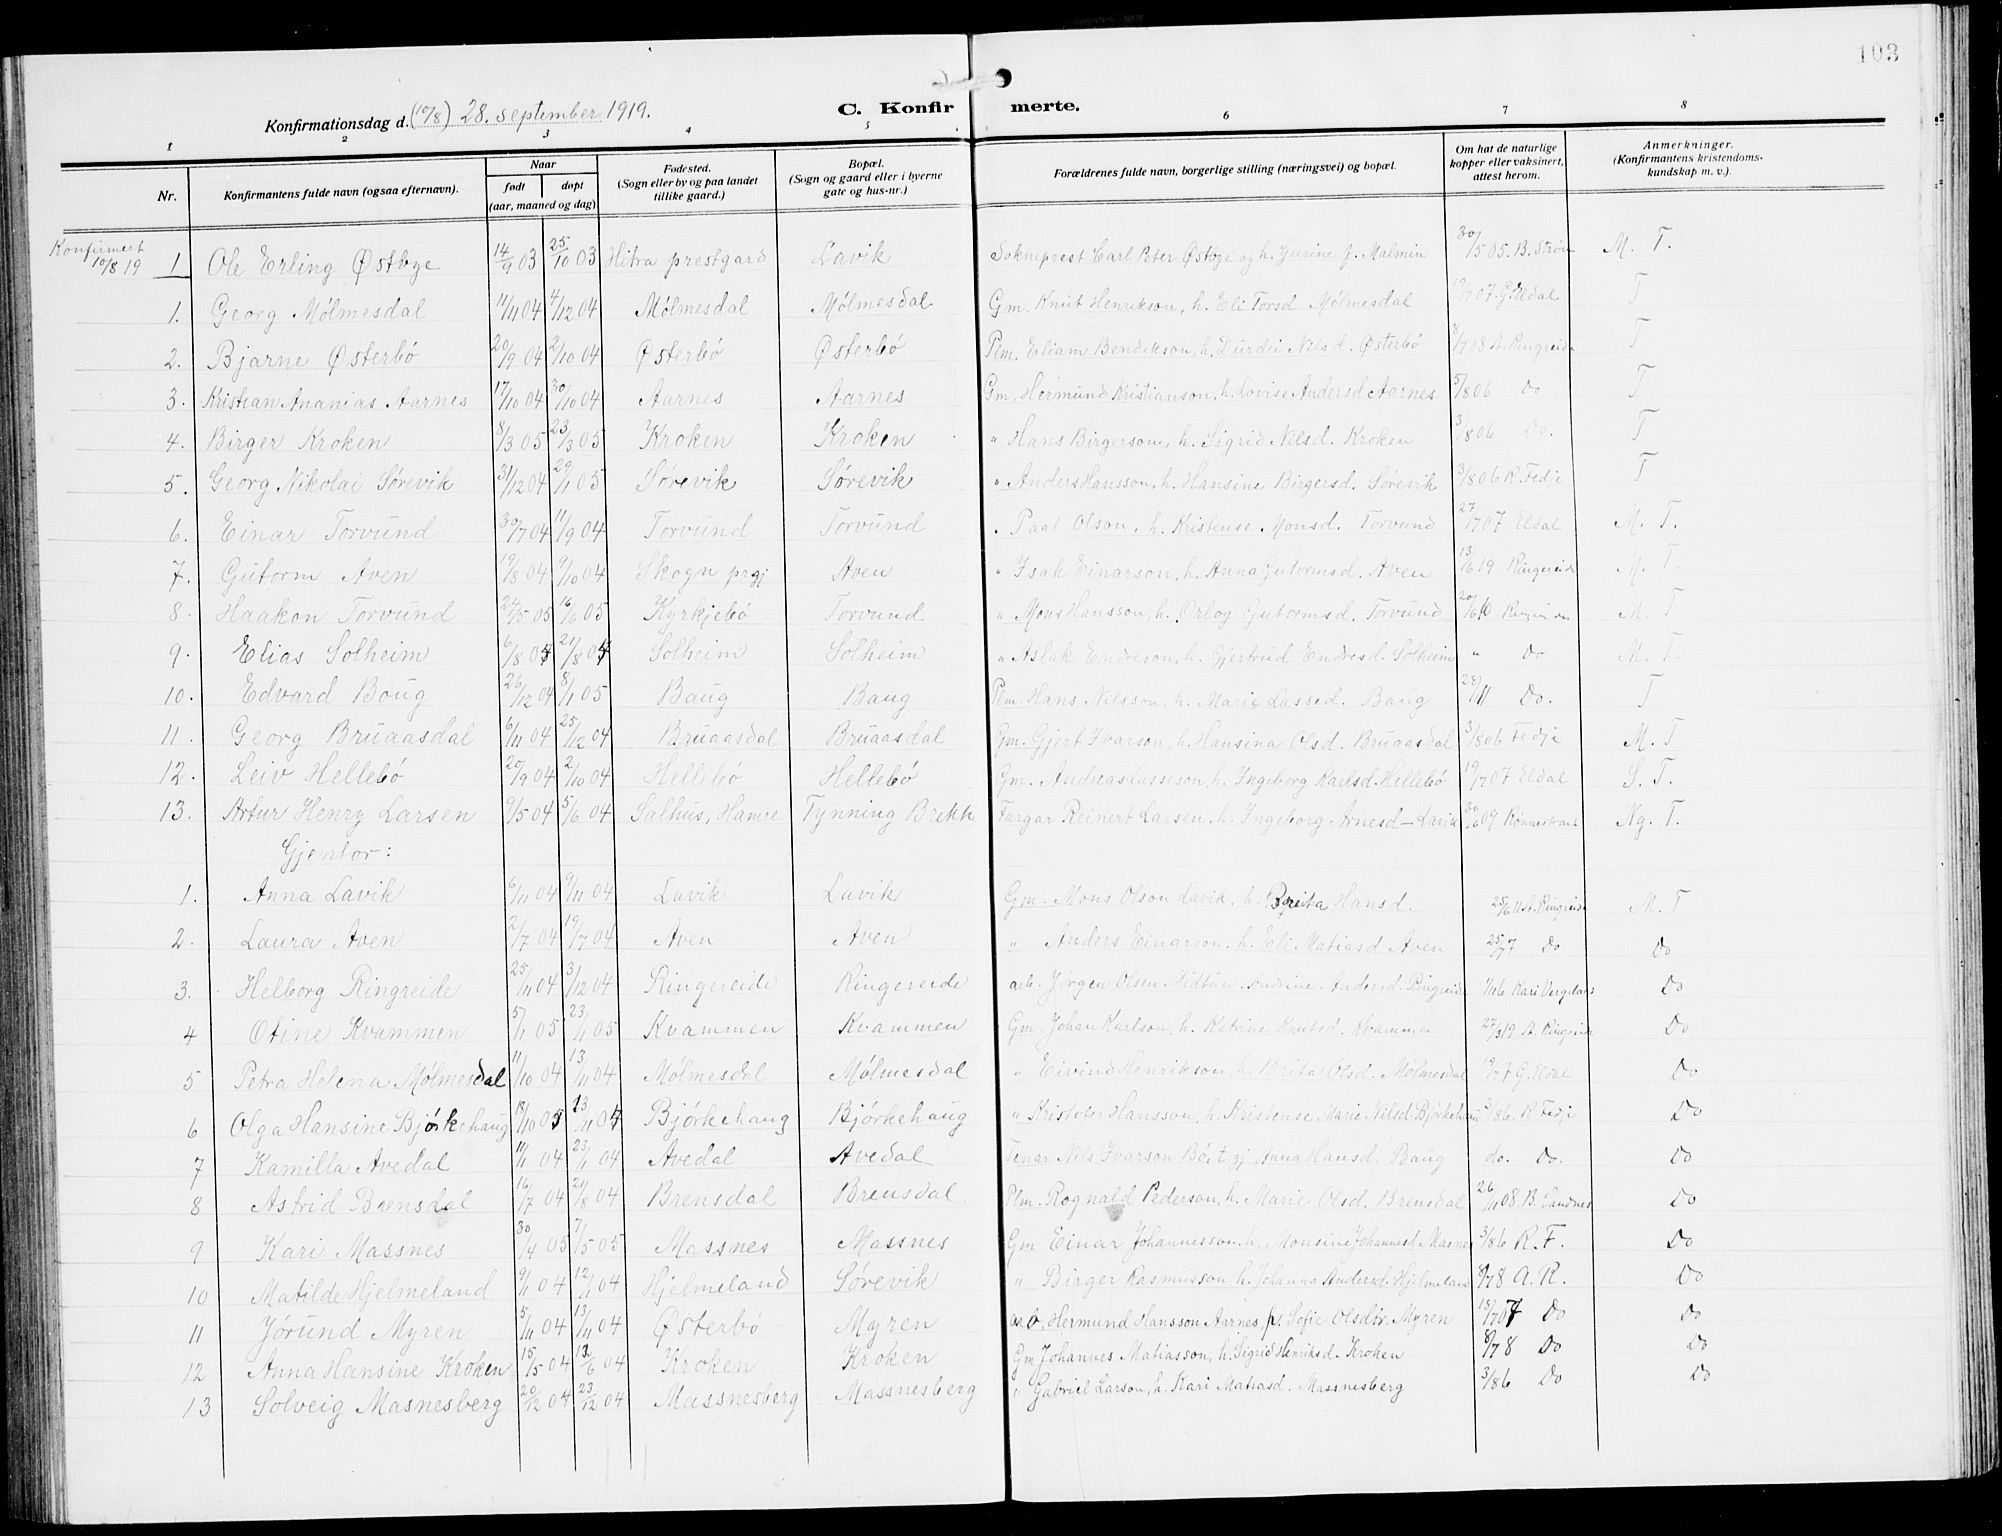 103
Konfirmationsdag d. (10/8) 28. september 1919. C. Konfirmerte.
1 2 3 4 5 6 7 8
Nr. Konfirmantens fulde navn (ogsaa efternavn). Naar født døpt (aar, maaned og dag) Fødested. (Sogn eller by og paa landet tillike gaard.) Bopæl. (Sogn og gaard eller i byerne gate og hus-nr.) Forældrenes fulde navn, borgerlige stilling (næringsvei) og bopæl. Om hat de naturlige kopper eller vaksinert, attest herom. Anmerkninger. (Konfirmantens kristendoms-kundskap m. v.).
Konfirmert 10/8 19 1 Ole Erling Østbge 14/9 03 25/10 03 Hitra prestgard Lavik Sokneprest Carl Peter Østbge og h. Gurine f. Malmin 30/5 05. B. Strøm M. T.
1. Georg Mølmesdal 11/11 04 4/12 04 Mølmesdal Mølmesdal Gm. Knut Henrikson, h. Eli Torsd Mølmesdal 19/7 07 G. Eldal T
2. Bjarne Østerbø 20/9 04 2/10 04 Østerbø Østerbø Plm. Erliam Bendikson, h. Durdei Nilsd. Østerbø 8/7 08 A. Ringreide T
3. Kristian Ananias Aarnes 17/10 04 30/10 04 Aarnes Aarnes Gm. Hermund Kristianson, h. Lovise Andersd Aarnes 5/8 06 Do T
4. Birger Kroken 8/3 05 23/3 05 Kroken Kroken " Hans Birgerson, h. Sigrid Nilsd. Kroken 3/8 06 Do. T
5. Georg Nikolai Sørevik 31/12 04 29/1 05 Sørevik Sørevik " Anders Hansson, h. Hansine Birgersd. Sørevik 3/8 06 R. Fedje T
6. Einar Torvund 30/7 04 11/9 04 Torvund Torvund " Paal Olson, h. Kristense Monsd. Torvund 27/7 07 Eldal M. T.
7. Gutorm Aven 19/8 04 9/10 04 Skogn prgj Aven " Isak Einarson, h. Anna Gutormsd. Aven 13/6 19 Ringereide M. T.
8. Haakon Torvund 24/5 05 16/6 05 Kyrkjebø Torvund " Mons Hansson, h. Orlog Gutormsd. Torvund 20/6 10 M. T
9. Elias Solheim 6/8 04 21/8 04 Solheim Solheim " Aslak Endreson, h. Gjertrud Endresd. Solheim " Do M. T.
10. Edvard Boug 26/12 04 8/1 05 Baug Baug Plm. Hans Nilsson, h. Marie Lassed. Baug 28/11 Do. T
11. Georg Bruaasdal 6/11 04 25/12 04 Bruaasdal Bruaasdal Gm. Gjert Ivarson, h. Hansina Olsd. Bruaasdal 3/8 06 Fedje M. T
12. Leiv Hellebø 20/9 04 2/10 04 Hellebø Hellebø Gm. Andreas Lasseson, h. Ingeborg Karlsd. Hellebø 19/7 07 Eldal S. T.
13. Artur Henry Larsen 9/5 04 5/6 04 Salhus, Hamre Tynning Brekk Fargar Reinert Larsen, h. Ingeborg Arnesd - Lavik 30/6 09 Ng. T.
Gjentor:
1. Anna Lavik 6/11 04 9/11 04 Lavik Lavik Gm. Mons Olson Lavik, h. Brita Hansd. 25/6 11 A. Ringreide M. T
2. Laura Aven 2/7 04 19/7 04 Aven Aven " Anders Einarson, h. Eli Matiasd Aven 25/7 7 Do Do
3. Helborg Ringreide 25/11 04 3/12 04 Ringereide Ringereide arb. Jørgen Olsen Midtun, Andrine Andersd. Ringreide 1/11 6 Kari Do
4 Otine Kvammen 5/1 05 23/1 05 Kvammen Kvammen Gm. Johan Karlson, h. Katrine Knutsd. Kvammen 27/3 19 A. Ringreide Do
5 Petra Helena Mølmesdal 11/10 04 13/11 04 Mølmesdal Mølmesdal " Eivind Henrikson, h. Brita Olsd. Mølmesdal 19/7 7 G. Eldal Do
6 Olga Hansine Bjørkehaug 18/10 04 13/11 04 Bjørkehaug Bjørkehaug " Kristofer Hansson, h. Kristense Marie Nilsd. Bjørkehaug 3/8 6. R. Fedje Do
7 Kamilla Avedal 11/1 04 23/1 04 Avedal Avedal Tenar Nils Ivarson Bø, t. gj Anna Hansd. Baug do. Do. Do
8 Astrid Brensdal 16/7 04 21/8 04 Brensdal Brensdal Plm. Rognald Pederson, h. Marie Olsd. Brensdal 26/11 08 B. Sandnes Do
9 Kari Massnes 30/4 05 7/5 05 Massnes Massnes Gm Einar Johannesson, h. Monsine Johannesd Masnes 3/8 6 R. F. Do
10 Matilde Hjelmeland 9/1 04 12/1 04 Hjelmeland Sørevik " Birger Rasmusson h. Johanna Andersd. Hjelmeland 8/7 8 A. R. Do
11 Jørund Myren 5/11 04 13/11 04 Østerbø Myren arb, Hermund Hansson Aarnes, p. Sofie Olsdtr. Myren 18/7 07 Do Do
12 Anna Hansine Kroken 15/5 04 12/6 04 Kroken Kroken Gm Johannes Matiasson, h. Sigrid Henriksd. Kroken 8/7 8 Do Do
13 Solveig Masnesberg 20/12 04 23/12 04 Massnesberg Massnesberg " Gabriel Larson, h. Kari Matiasd. Massnesberg 3/8 6 Do Do